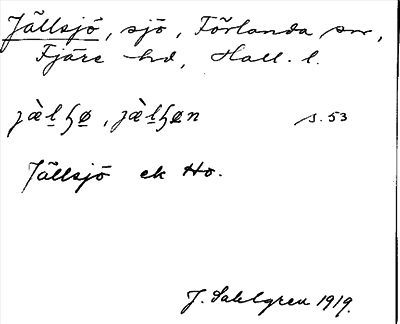 Jällsjö, sjö, Förlanda sn,
Fjäre hd, Hall. l.
jæ̀l̠ɧø̠, jæ̀l̠ɧøn s. 53
Jällsjö ek Ho.
J. Sahlgren 1919.